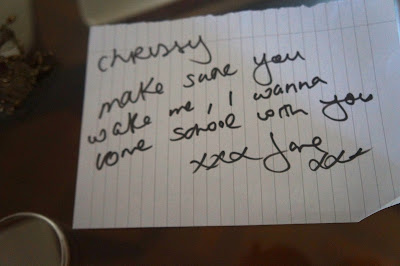 chrissy
make sure you
wake me, I wanna
come school with you
xxx Jane
xxx